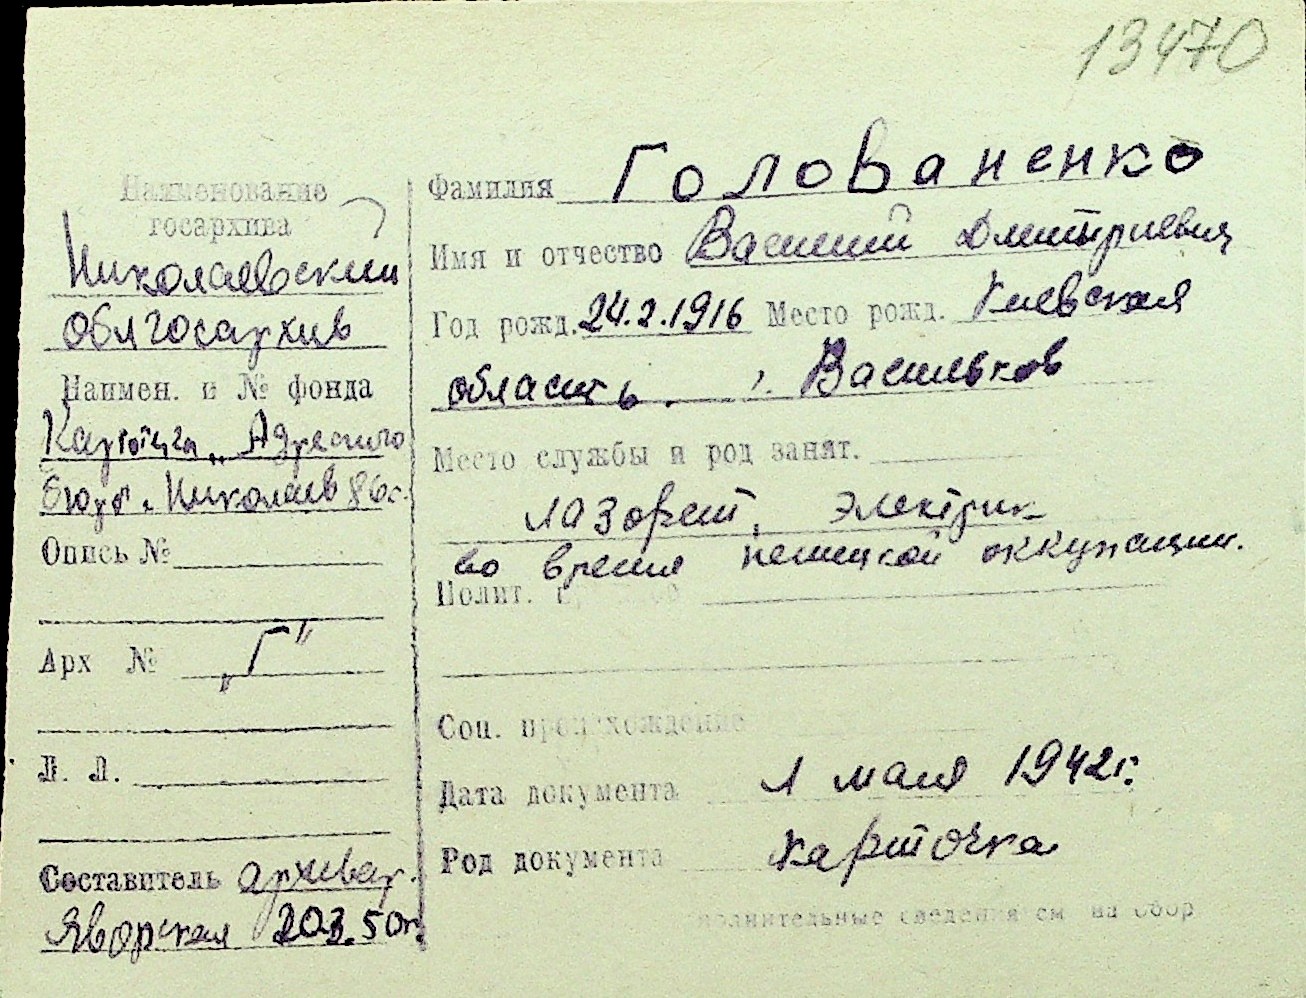 13470
Наименование
госархива
Николаевский
облгосархив
Наимен. и № фонда
Адресного
Бюро г. Николаев
Опись №
Арх №
„Г"
Л. Л.
Составитель архивар.
Яворская 20.3.50г.
Фамилия Голованенко
Имя и отчество Василий Дмитриевич
Год рожд. 24.2.1916 Место рожд. Киевская
область. г. Васильков
Место службы и род занят.
лазорет, электрик
во время немецкой оккупации.
Полит.
Соц. происхождение
Дата документа 1 мая 1942г.
Род документа карточка
дополнительные сведения см на обор